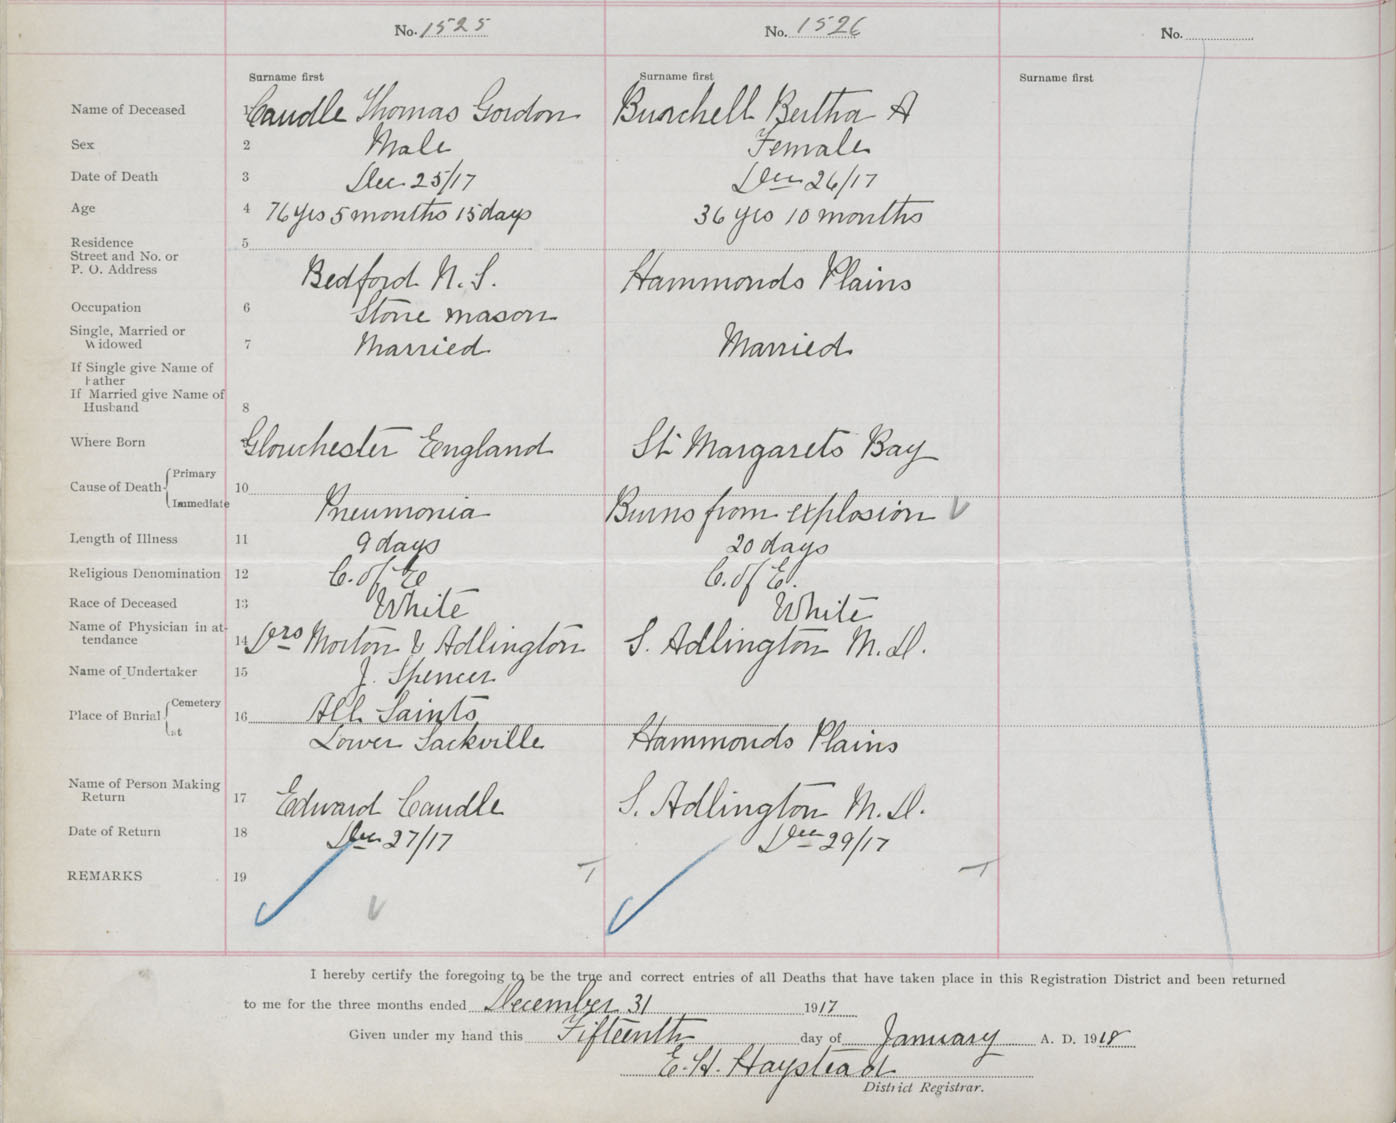 No. 1525 No. 1526 No.
Surname first Surname first Surname first
Name of Deceased 1 Caudle Thomas Gordon Burchell Bertha A
Sex 2 Male Female
Date of Death 3 Dec 25/17 Dec 26/17
Age 4 76 yrs 5 months 15 days 36 yrs 10 months
Residence 5
Street and No. or
P. O. Address Bedford N. S. Hammonds Plains
Occupation 6 Stone mason
Single, Married or
Widowed 7 Married Married
If Single give Name of
Father
If Married give Name of
Husband 8
Where Born Glouchester England St Margarets Bay
Cause of Death Primary 10
Immediate Pneumonia Burns from explosion
Length of Illness 11 9 days 20 days
Religious Denomination 12 C. of E C. of E.
Race of Deceased 13 White White
Name of Physician in at-
tendance 14 Drs Morton & Adlington S. Adlington M. D.
Name of Undertaker 15 J. Spencer
Place of Burial Cemetery 16 All Saints
at Lower Sackville Hammonds Plains
Name of Person Making
Return 17 Edward Caudle S. Adlington M. D.
Date of Return 18 Dec 27/17 Dec 29/17
REMARKS 19
I hereby certify the foregoing to be the true and correct entries of all Deaths that have taken place in this Registration District and been returned
to me for the three months ended December 31 1917
Given under my hand this Fifteenth day of January A. D. 1918
E. H. Haystead
District Registrar.